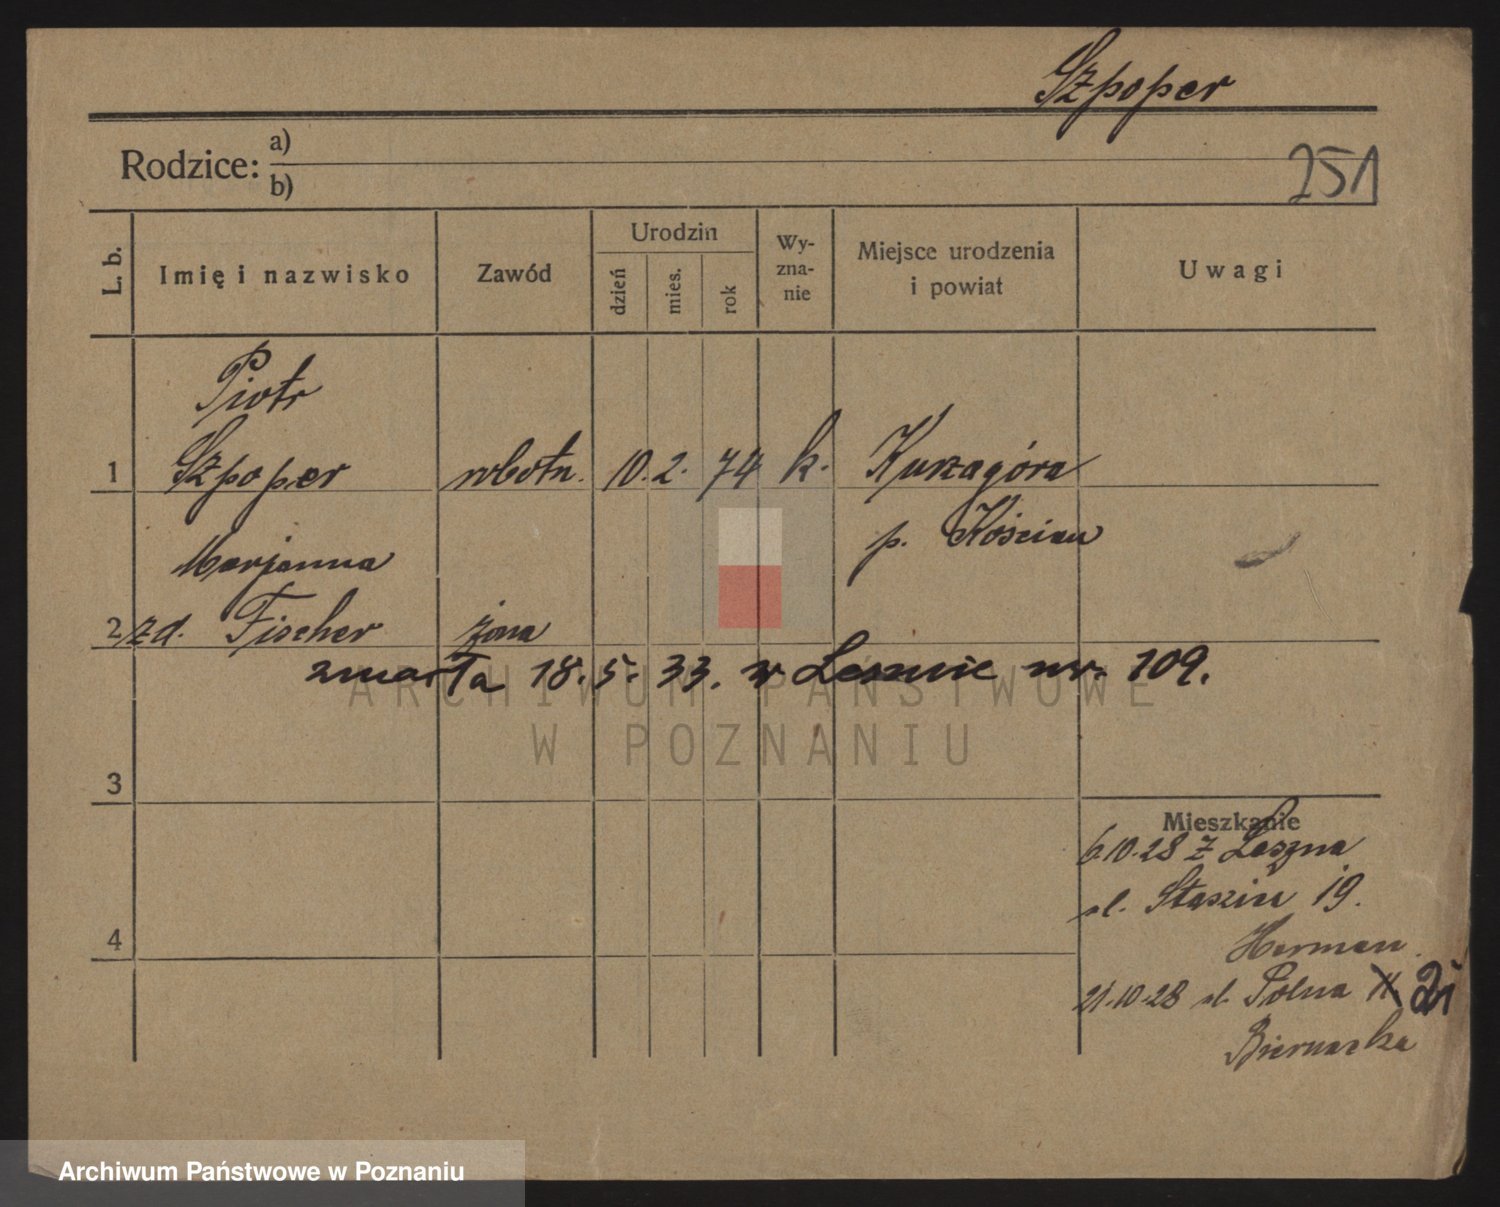 Szpoper
Rodzice: a)
b)
251
L. b.
Imię i nazwisko
Zawód
Urodzin
dzień
mies.
rok
Wy-
zna-
nie
Miejsce urodzenia
i powiat
Uwagi
Piotr
1 Szpoper robotn. 10. 2. 74 k. Kurzagóra
p. Kościan
Marjanna
2 zd. Fischer żona
zmarła 18. 5. 33. w Lesznie nr. 109.
ARCHIWUM PAŃSTWOWE
W POZNANIU
3
Mieszkanie
6.10.28 z Leszna
ul. Staszica 19.
Herman
4
21.10.28 ul. Polna 21
Biernacka
Archiwum Państwowe w Poznaniu